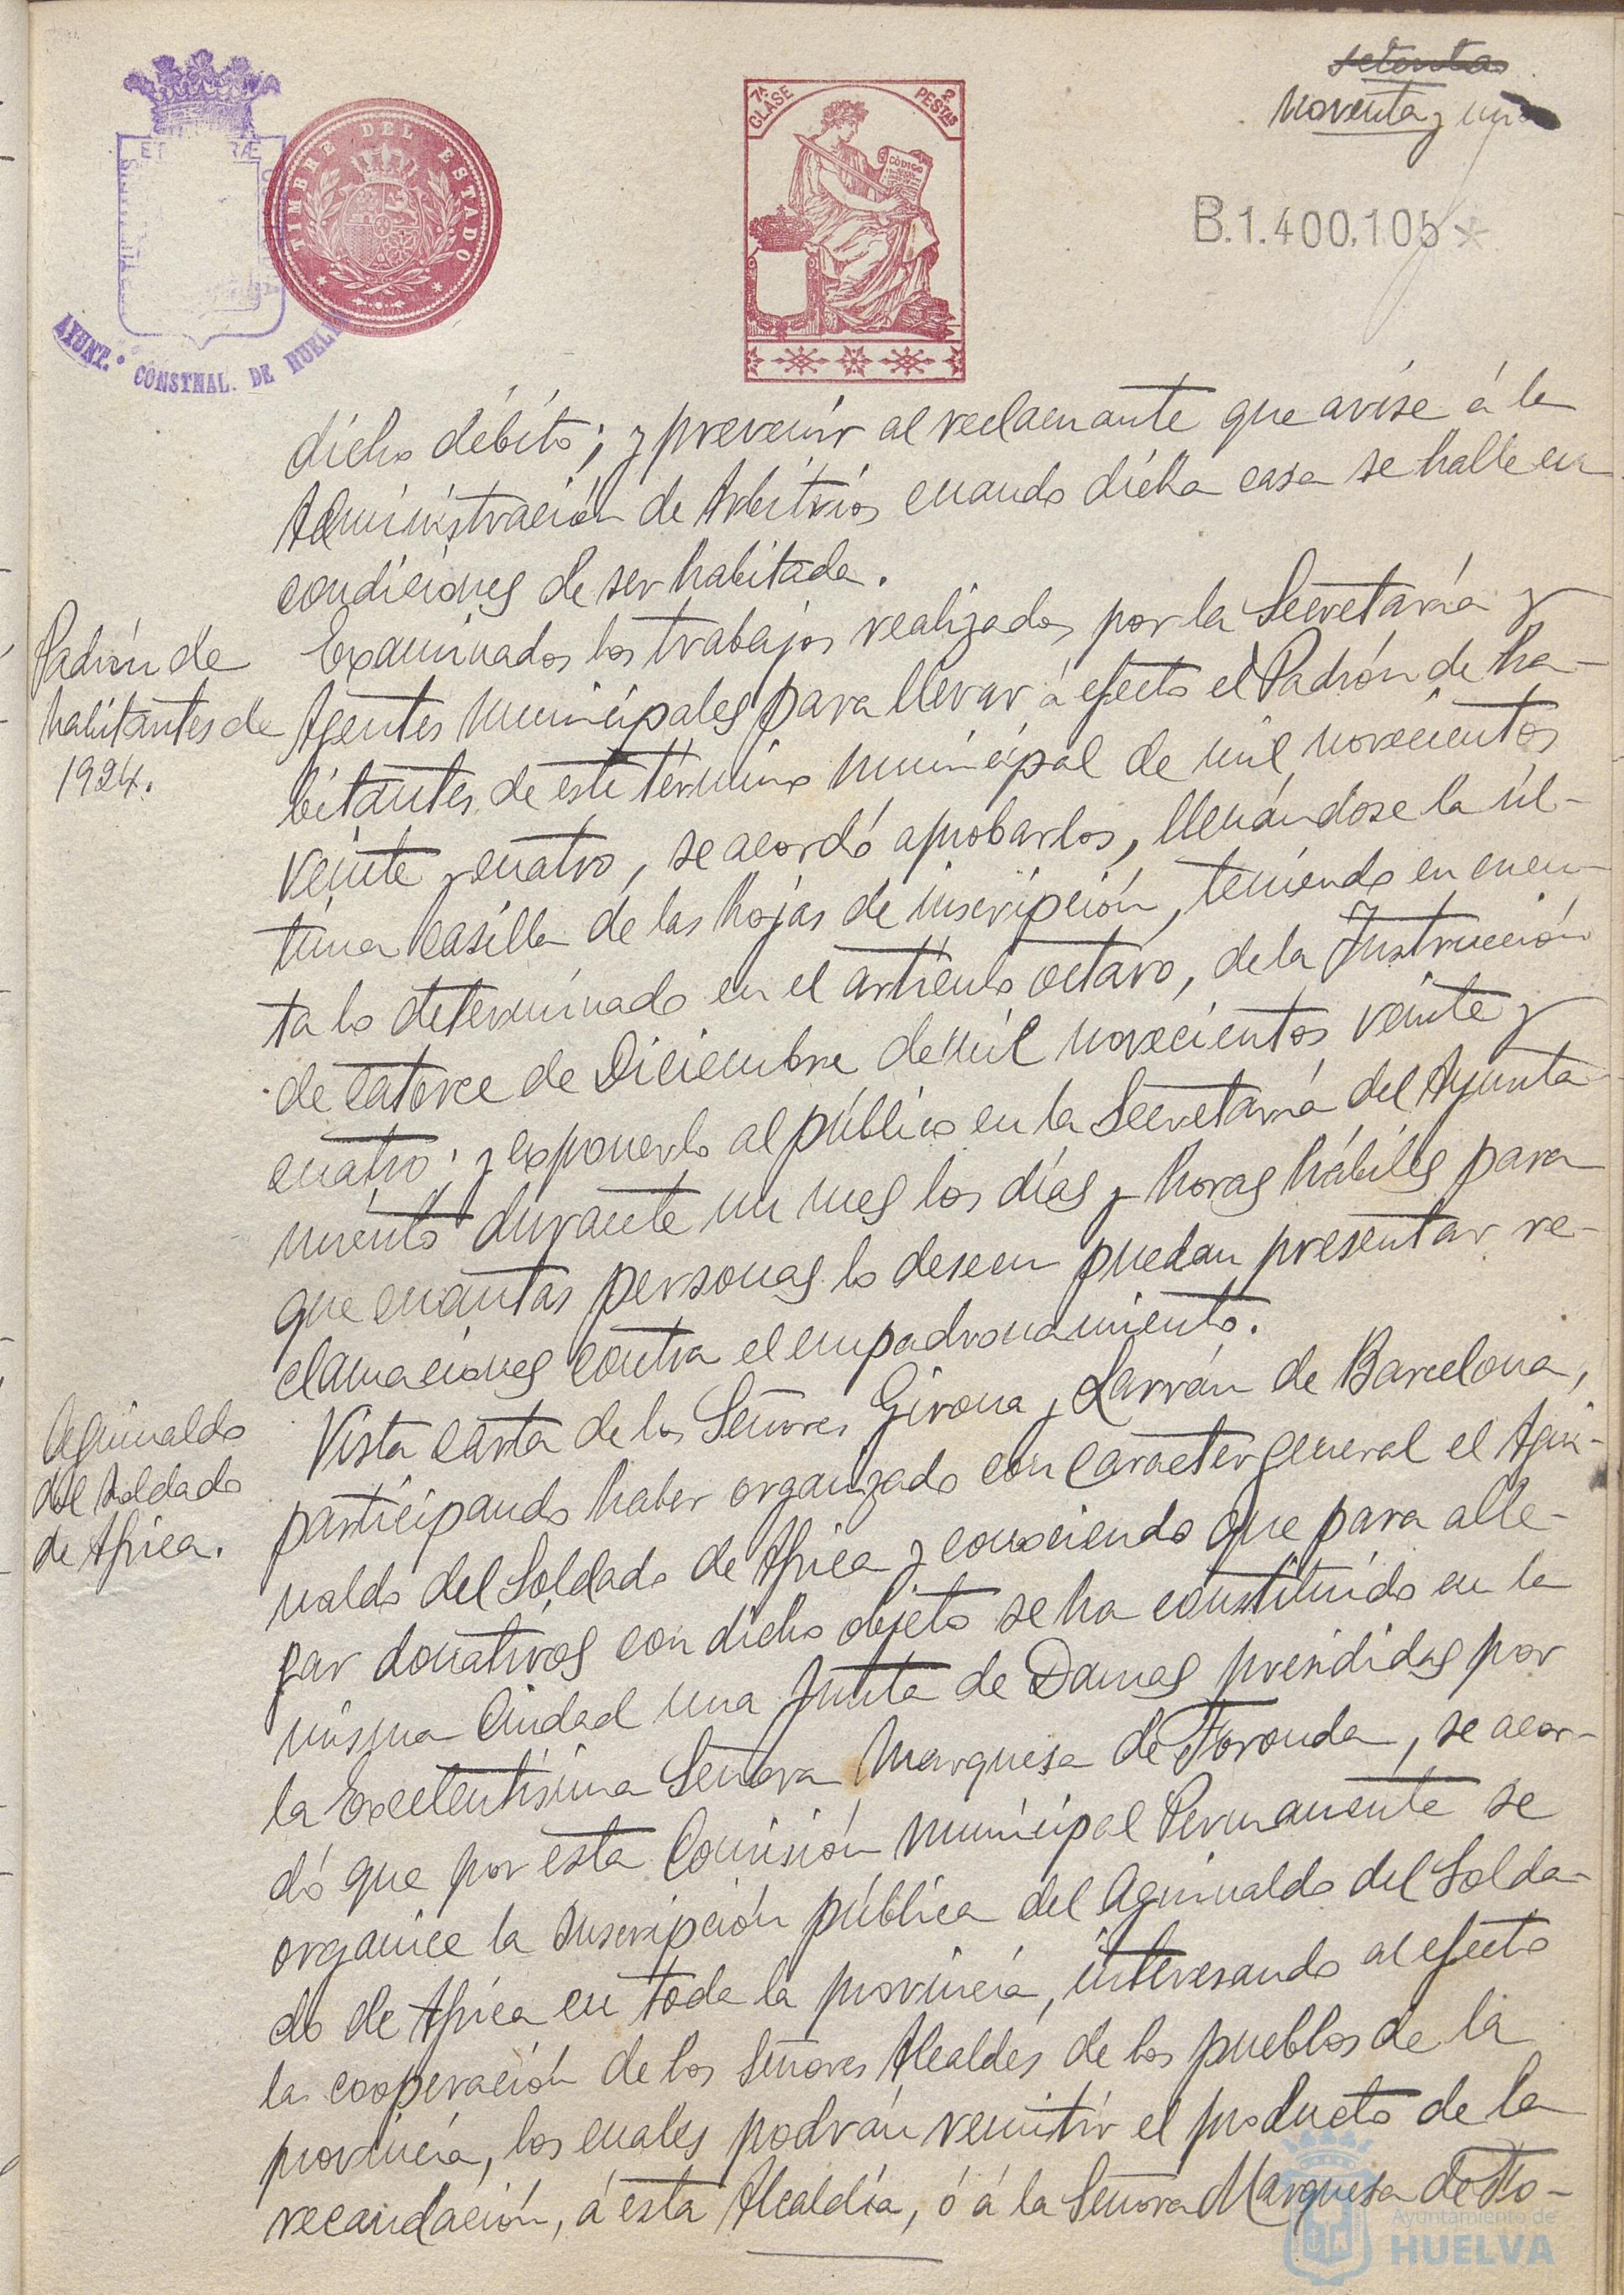 setenta
noventa y uno
7ª CLASE
2 PESTAS
CÓDIGO
TIMBRE DEL ESTADO
AYUNT.º CONSTNAL. DE HUEL
B.1.400.105*
dicho débito; y prevenir al reclamante que avise á la
Administración de Arbitrios cuando dicha casa se halle en
condiciones de ser habitada.
Padrón de
habitantes de
1924.
Examinados los trabajos realizados por la Secretaría y
Agentes municipales para llevar á efecto el Padrón de ha-
bitantes de este término municipal de mil novecientos
veinte y cuatro, se acordó aprobarlos, llenándose la úl-
tima casilla de las hojas de inscripción, teniendo en cuen-
ta lo determinado en el artículo octavo, de la Instrucción
de catorce de Diciembre de mil novecientos veinte y
cuatro; y exponerlo al público en la Secretaría del Ayunta-
miento durante un mes los días y horas hábiles para
que cuantas personas lo deseen puedan presentar re-
clamaciones contra el empadronamiento.
Aguinaldo
del soldado
de Africa.
Vista carta de los Señores Girona y Larrán de Barcelona,
participando haber organizado con caracter general el Agui-
naldo del Soldado de Africa y conociendo que para alle-
gar donativos con dicho objeto se ha constituído en la
misma Ciudad una Junta de Damas presididas por
la Excelentísima Señora Marquesa de Foronda, se acor-
dó que por esta Comisión Municipal Permanente se
organice la suscripción pública del Aguinaldo del Solda-
do de Africa en toda la provincia, interesando al efecto
la cooperación de los Señores Alcaldes de los pueblos de la
provincia, los cuales podrán remitir el producto de la
recaudación, á esta Alcaldía, ó á la Señora Marquesa de Fo-
Ayuntamiento de
HUELVA